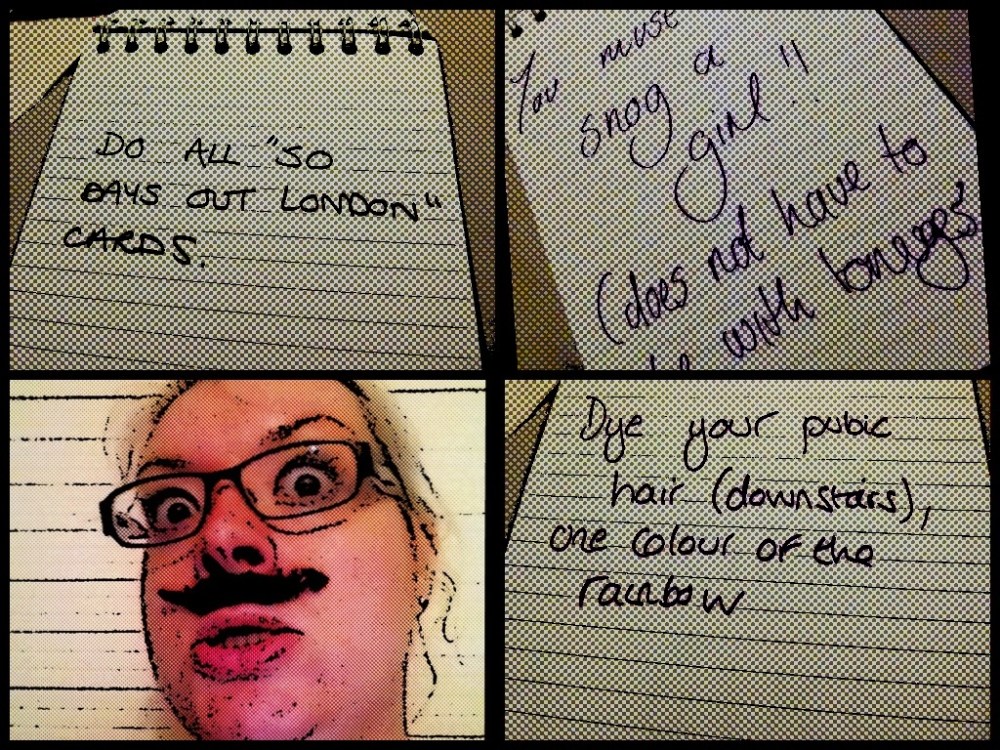 DO ALL "50
DAYS OUT LONDON"
CARDS.
You must
snog a
girl !!
(does not have to
be with tongues
Dye your pubic
hair (downstairs),
one colour of the
rainbow